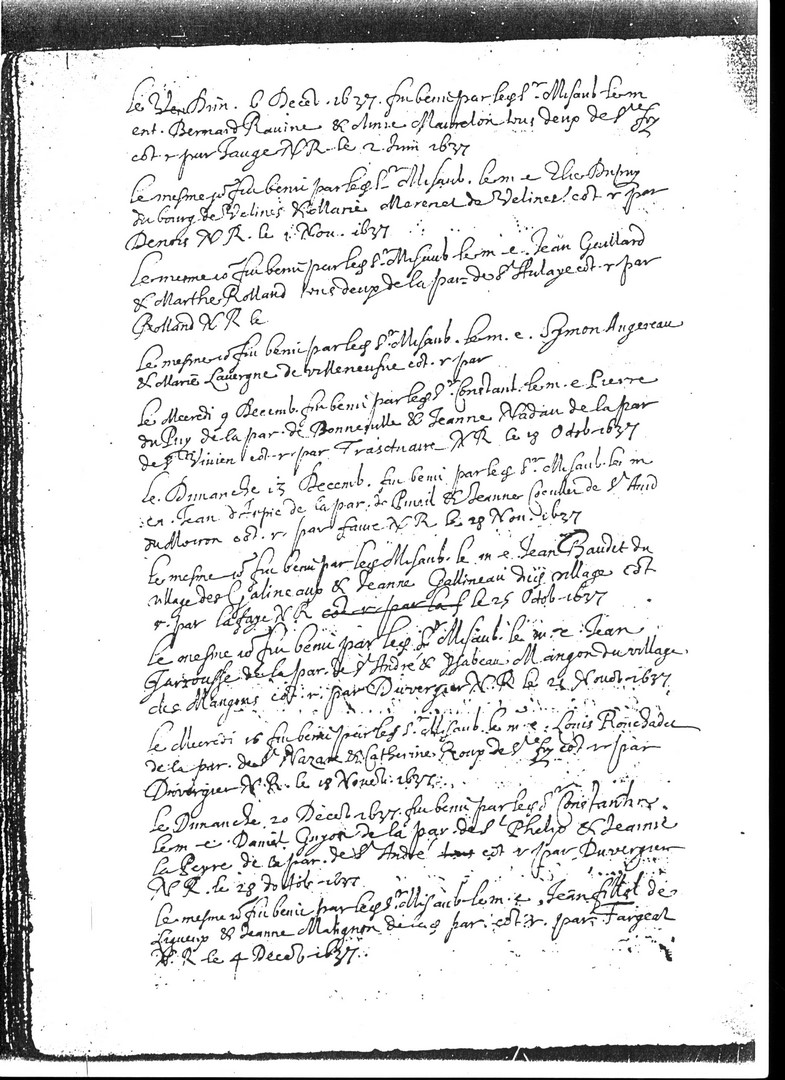 Le Dim. 6 Decéb. 1637. fut beni par led Sr. Misaub. le m
ent. Bernard Ravine & Anne tous deux de Ste foy
cót. r. par Jauge N R. le 2 Juin 1637
le mesme io. fut beni par led Sr. Misaub. le m. e Elie Dupuy
du bourg de Velines & Marie de Velines. cót. r par
Denois N R. le 1. Nou. 1637
le mesme io fut beni par led Sr. Misaub le m. e. Jean Gaillard
& Marthe Rolland tous deux de la par. de Ste Aulaye cót. r par
Rolland N R le
le mesme io fut beni par led Sr. Misaub. le m. e. Symon Augereau
& Marie Lauergne de villeneufue cót. r par
le Mecredi 9 Decemb. fut beni par led Sr. Constant. le m. e Pierre
du Puy de la par. de Bonneuille & Jeanne Nadau de la par
de St Vivien cót. r. par N R le 18 Octob 1637
le Dimanche 13 Decemb. fut beni par led Sr. Misaub. le m
en. Jean de la par. de & Jeanne de St And
N R. le 28 Nou. 1637
le mesme io fut beni par led Misaub. le m e Jean Baudet du
village des Galineaux & Jeanne Gallineau dud village cót
r. par Laffage N R cót r. par laf le 25 Octob 1637
le mesme io fut beni par led Sr Misaub. le m. e Jean
Jarrousse de la par. de St André & Isabeau Mangon du village
des Mangons cót. r. par Duvergier N R le 23 Nouéb 1637
le Mecredi 16 fut beni par led Sr. Misaub. le m. e. Louis
de la par. de St Nazare & Catherine Roup de Ste foy cót r par
Duvergier N. R. le 18 Nouéb. 1637.
le Dimanche 20 Decéb 1637. fut beni par led Sr Constantin.
le m. e. Daniel Guyon de la par. de St Phelip & Jeanne
la Peyre de la par. de St André cót r par Duvergier
N R. le 28 d'Octob. 1637
le mesme io fut beni par led Sr. Misaub le m. e Jean fillol de
Ligueux & Jeanne Matignon de lad par. cót r. par Fargeal
N. R le 4 Decéb 1637.